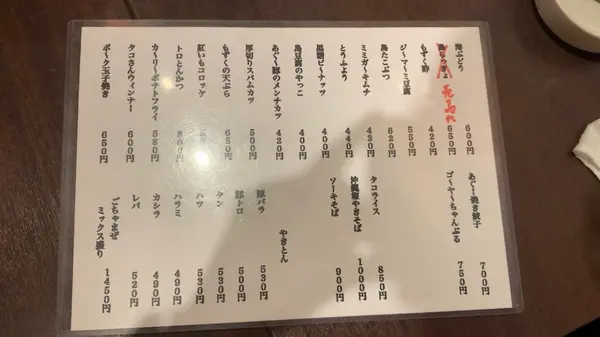 海ぶどう 600円
島らっきょ 650円
売切れ
もずく酢 420円
ジーマーミ豆腐 550円
島たこぶつ 620円
ミミガーキムチ 430円
とうふよう 440円
黒糖ピーナッツ 400円
島豆腐のやっこ 440円
あぐー豚のメンチカツ 420円
厚切りスパムカツ 500円
もずくの天ぷら 650円
紅いもコロッケ
トロとんかつ 800円
カーリーポテトフライ 580円
タコさんウィンナー 600円
ポーク玉子焼き 650円
あぐー焼き餃子 700円
ゴーヤーちゃんぷる 750円
タコライス 850円
沖縄塩やきそば 1000円
ソーキそば 900円
やきとん
豚バラ 530円
豚トロ 500円
タン 530円
ハツ 530円
ハラミ 490円
カシラ 490円
レバ 520円
ごちゃまぜ
ミックス盛り 1450円